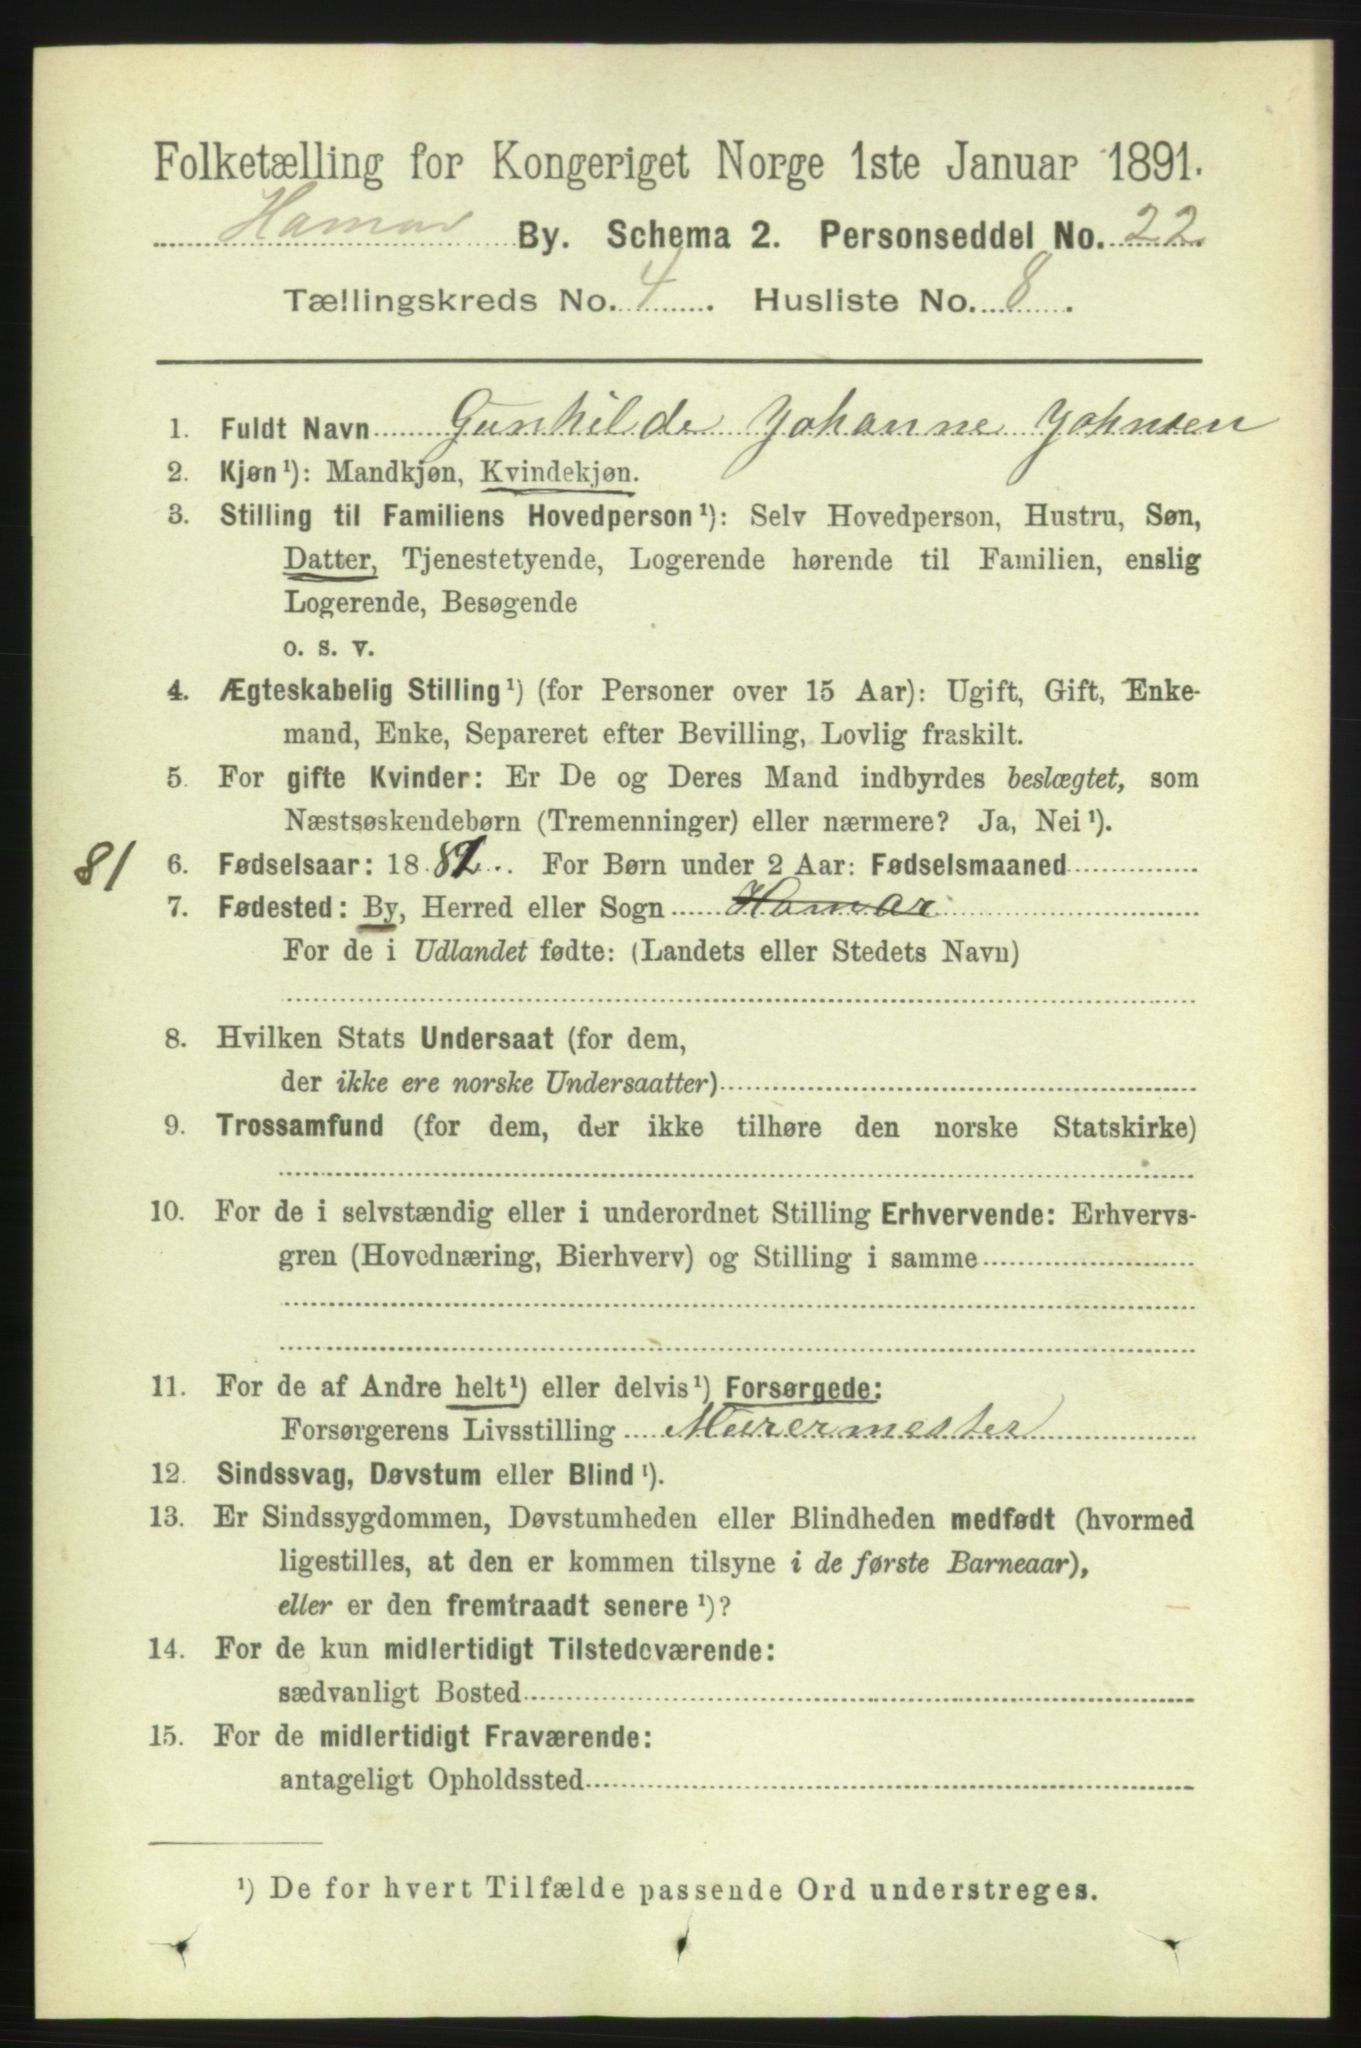 Folketælling for Kongeriget Norge 1ste Januar 1891.
Hamar By. Schema 2. Personseddel No. 22
Tællingskreds No. 4. Husliste No. 8.
1. Fuldt Navn Gunhilde Johanne Johnsen
2. Kjøn¹): Mandkjøn, Kvindekjøn.
3. Stilling til Familiens Hovedperson¹): Selv Hovedperson, Hustru, Søn,
Datter, Tjenestetyende, Logerende hørende til Familien, enslig
Logerende, Besøgende
o. s. v.
4. Ægteskabelig Stilling¹) (for Personer over 15 Aar): Ugift, Gift, Enke-
mand, Enke, Separeret efter Bevilling, Lovlig fraskilt.
5. For gifte Kvinder: Er De og Deres Mand indbyrdes beslægtet, som
Næstsøskendebørn (Tremenninger) eller nærmere? Ja, Nei¹).
81 6. Fødselsaar: 18 81. For Børn under 2 Aar: Fødselsmaaned
7. Fødested: By, Herred eller Sogn Hamar
For de i Udlandet fødte: (Landets eller Stedets Navn)
8. Hvilken Stats Undersaat (for dem,
der ikke ere norske Undersaatter)
9. Trossamfund (for dem, der ikke tilhøre den norske Statskirke)
10. For de i selvstændig eller i underordnet Stilling Erhvervende: Erhvervs-
gren (Hovednæring, Bierhverv) og Stilling i samme
11. For de af Andre helt¹) eller delvis¹) Forsørgede:
Forsørgerens Livsstilling Murermester
12. Sindssvag, Døvstum eller Blind¹).
13. Er Sindssygdommen, Døvstumheden eller Blindheden medfødt (hvormed
ligestilles, at den er kommen tilsyne i de første Barneaar),
eller er den fremtraadt senere¹)?
14. For de kun midlertidigt Tilstedeværende:
sædvanligt Bosted
15. For de midlertidigt Fraværende:
antageligt Opholdssted
¹) De for hvert Tilfælde passende Ord understreges.